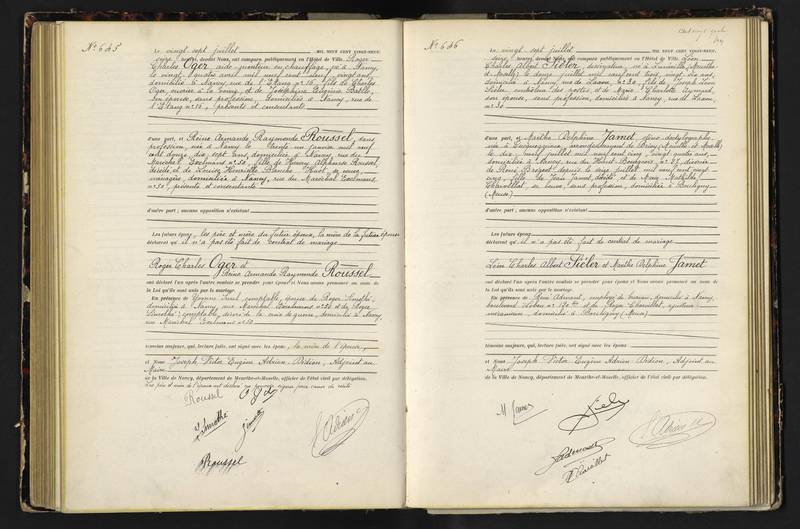 N° 645
Le vingt sept juillet MIL NEUF CENT VINGT-NEUF,
heures, devant Nous, ont comparu publiquement en l'Hôtel de Ville Roger
Charles Oger aide monteur en chauffage, né à Nancy
le vingt quatre avril mil neuf cent neuf, vingt ans,
domicilié à Nancy rue de l'Etang n° 16, fils de Charles
Oger, et de Joséphine
son épouse, sans profession, domiciliés à Nancy, rue de
l'Etang n° 16, présents et consentants
d'une part, et Reine Armande Raymonde Roussel, sans
profession, née à Nancy le trente un janvier mil neuf
cent douze, dix sept ans, domiciliée à Nancy, rue du
Maréchal Exelmans n° 50, fille de Henry Alphonse Roussel
décédé, et de Louise Henriette Blanche Huot, sa veuve,
ménagère, domiciliée à Nancy, rue du Maréchal Exelmans
n° 50, présente et consentante
d'autre part ; aucune opposition n'existant
Les futurs époux, les père et mère du futur époux, la mère de la future épouse
déclarent qu'il n'a pas été fait de contrat de mariage
Roger Charles Oger et
Reine Armande Raymonde Roussel
ont déclaré l'un après l'autre vouloir se prendre pour époux et Nous avons prononcé au nom de
la Loi qu'ils sont unis par le mariage.
En présence de comptable, épouse de Roger
domiciliée à Nancy, rue Maréchal Exelmans n° 50 et de Roger
comptable, décoré de la croix de guerre, domicilié à Nancy,
rue Maréchal Exelmans n° 50
témoins majeurs, qui, lecture faite, ont signé avec les époux, la mère de l'épouse,
et Nous Joseph Victor Eugène Adrian Didion, Adjoint au
Maire
de la Ville de Nancy, département de Meurthe-et-Moselle, officier de l'état civil par délégation.
Les père et mère de l'époux ont déclaré ne pouvoir signer
Roussel
Roussel
N° 646
Le vingt sept juillet MIL NEUF CENT VINGT-NEUF,
heures, devant Nous, ont comparu publiquement en l'Hôtel de Ville Léon
Charles Albert Siéler, dessinateur, né à Lunéville (Meurthe
et Moselle) le douze juillet mil neuf cent trois, vingt six ans,
domicilié à Nancy, rue de Laxou, n° 30, fils de Joseph Léon
Siéler, employé des postes, et de Marie Charlotte Aymard,
son épouse, sans profession, domiciliés à Nancy, rue de Laxou,
n° 30
d'une part, et Marthe Delphine Jamet, sténo dactylographe,
née à arrondissement de Briey (Meurthe et Moselle)
le dix neuf juillet mil neuf cent cinq, vingt quatre ans,
domiciliée à Nancy, rue n° 27, divorcée
de René depuis le seize juillet mil neuf cent vingt
cinq, fille de Jamet, décédé, et de Marie Mathilde
Chavaillet, sa veuve, sans profession, domiciliée à Bouligny
(Meuse)
d'autre part ; aucune opposition n'existant
Les futurs époux
déclarent qu'il n'a pas été fait de contrat de mariage
Léon Charles Albert Siéler et Marthe Delphine Jamet
ont déclaré l'un après l'autre vouloir se prendre pour époux et Nous avons prononcé au nom de
la Loi qu'ils sont unis par le mariage.
En présence de René employé de bureau, domicilié à Nancy,
boulevard et de Roger Chavaillet, ajusteur
mécanicien, domicilié à Bouligny (Meuse)
témoins majeurs, qui, lecture faite, ont signé avec les époux
et Nous Joseph Victor Eugène Adrian Didion, Adjoint au
Maire
de la Ville de Nancy, département de Meurthe-et-Moselle, officier de l'état civil par délégation.
M Jamet
Siéler